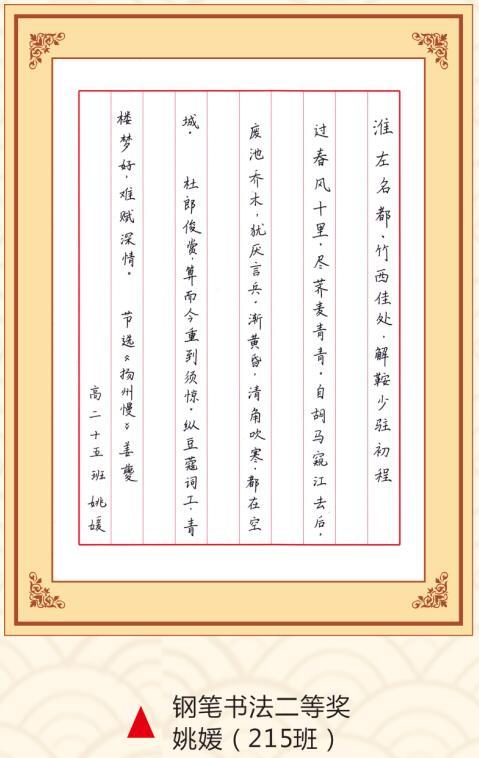 淮左名都，竹西佳处，解鞍少驻初程
过春风十里，尽荠麦青青。自胡马窥江去后，
废池乔木，犹厌言兵。渐黄昏，清角吹寒，都在空
城。 杜郎俊赏，算而今重到须惊。纵豆蔻词工，青
楼梦好，难赋深情。 节选《扬州慢》姜夔
高二十五班 姚媛
钢笔书法二等奖
姚媛（215班）